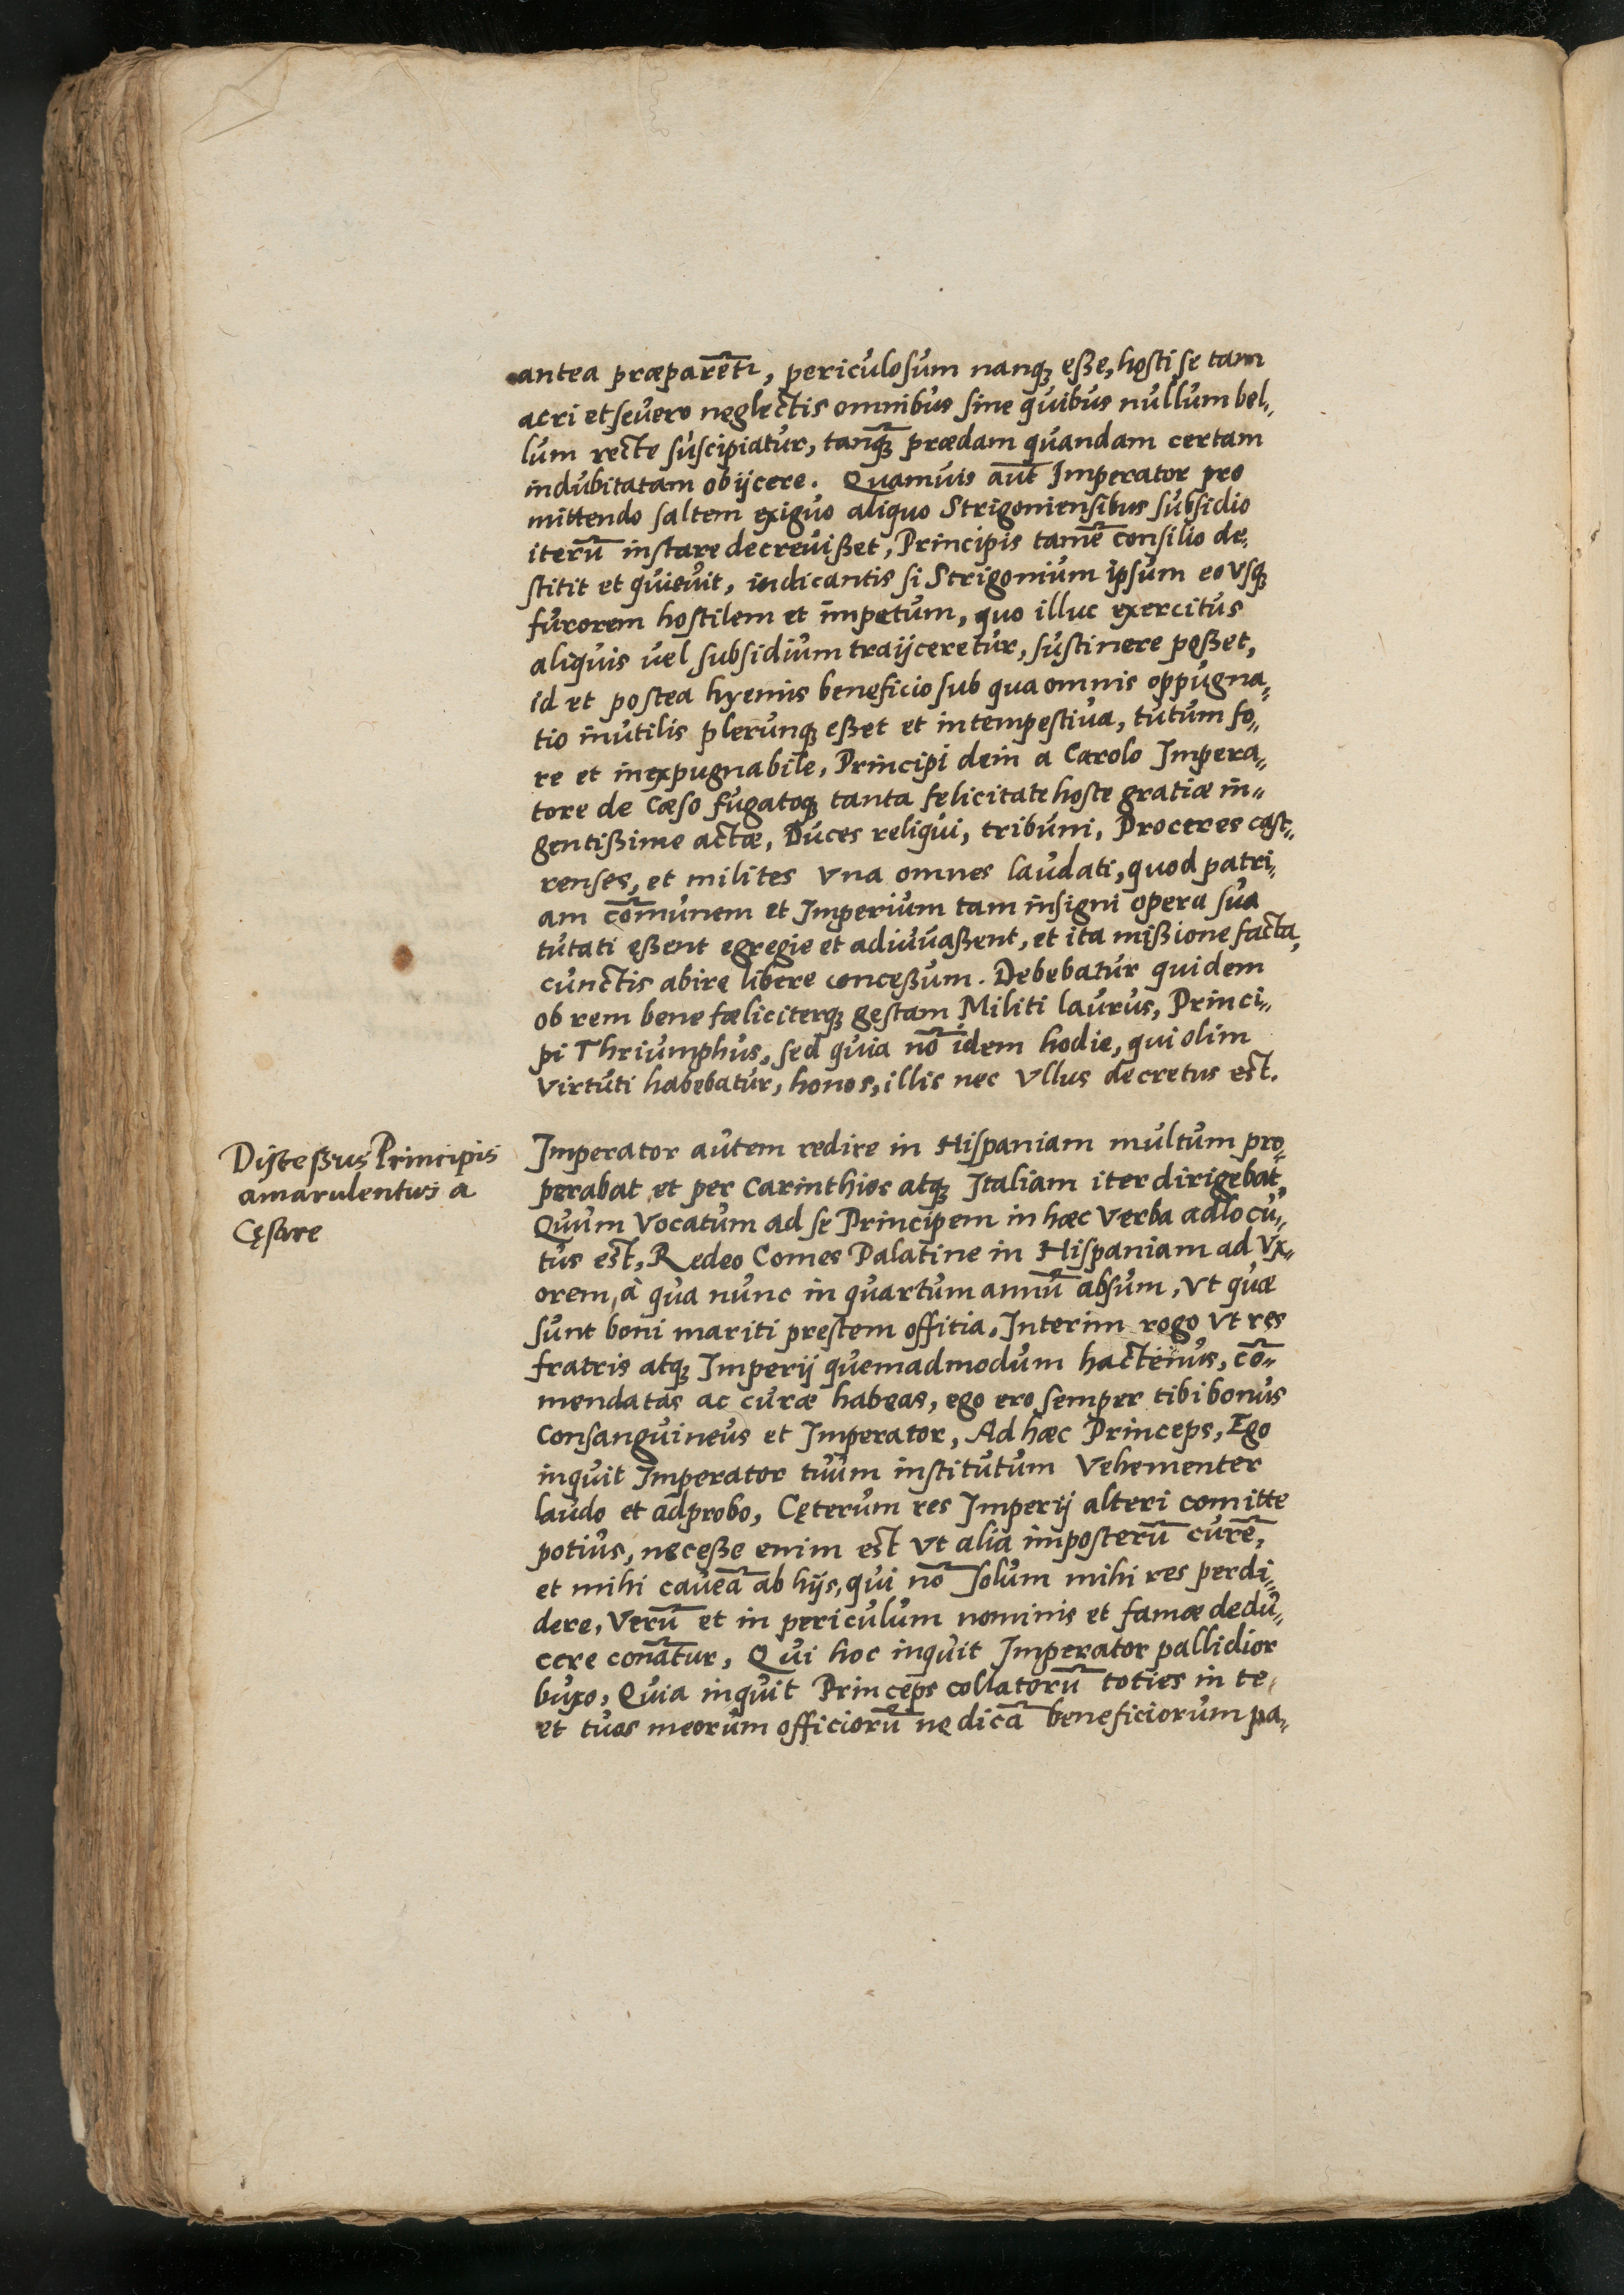 antea præparēt~, periculosum nanq; eße, hosti se tam
acri et seuero neglectis omnibus sine quibus nullum bel„
lum recte suscipiatur, tanq̃; prædam quandam certam
indubitatam obijcere. Quamuis aut̄ Imperator pro
mittendo saltem exiguo aliquo Strigoniensibus subsidio
iterū instare decreuißet, Principis tamē consilio de„
stitit et quieuit, indicantis si Strigonium ipsum eo vsq;
furorem hostilem et impetum, quo illuc exercitus
aliquis uel subsidium traijceretur, sustinere poßet,
id et postea hyemis beneficio sub qua omnis oppugna„
tio inutilis plerunq; eßet et intempestiua, tutum fo„
re et inexpugnabile, Principi dein a Carolo Impera„
tore de Cæso fugatoq; tanta felicitate hoste gratiæ in„
gentißime actæ, Duces reliqui, tribuni, Proceres cast„
renses, et milites vna omnes laudati, quod patri„
am cōmunem et Imperium tam insigni opera sua
tutati eßent egregie et adiuuaßent, et ita mißione facta,
cunctis abire libere conceßum. Debebatur quidem
ob rem bene fæliciterq; gestam Militi laurus, Princi„
pi Thriumphus, sed quia nō idem hodie, qui olim
virtuti habebatur, honos, illis nec vllus decretus est.
Disceßus Principis
amarulentus a
Cęsare
Imperator autem redire in Hispaniam multum pro„
perabat et per Carinthios atq; Italiam iter dirigebat,
Quum vocatum ad se Principem in hæc verba adlocu„
tus est, Redeo Comes Palatine in Hispaniam ad vx„
orem, à qua nunc in quartum annū absum, vt quæ
sunt boni mariti prestem offitia, Interim rogo vt res
fratris atq; Imperij quemadmodum hactenus, cō„
mendatas ac curæ habeas, ego ero semper tibi bonus
Consanguineus et Imperator, Ad hæc Princeps, Ego
inquit Imperator tuum institutum vehementer
laudo et adprobo, Cęterum res Imperij alteri comitte
potius, neceße enim est vt alia imposterū curē,
et mihi caueā ab hijs, qui nō solum mihi res perdi„
dere, verū et in periculum nominis et famæ dedu„
cere conātur, Qui hoc inquit Imperator pallidior
buxo, Quia inquit Princeps collatorū toties in te
et tuos meorum officiorū ne dicā beneficiorum pa„